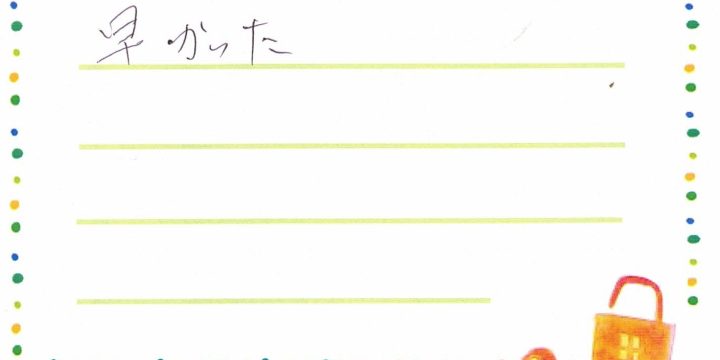 早かった